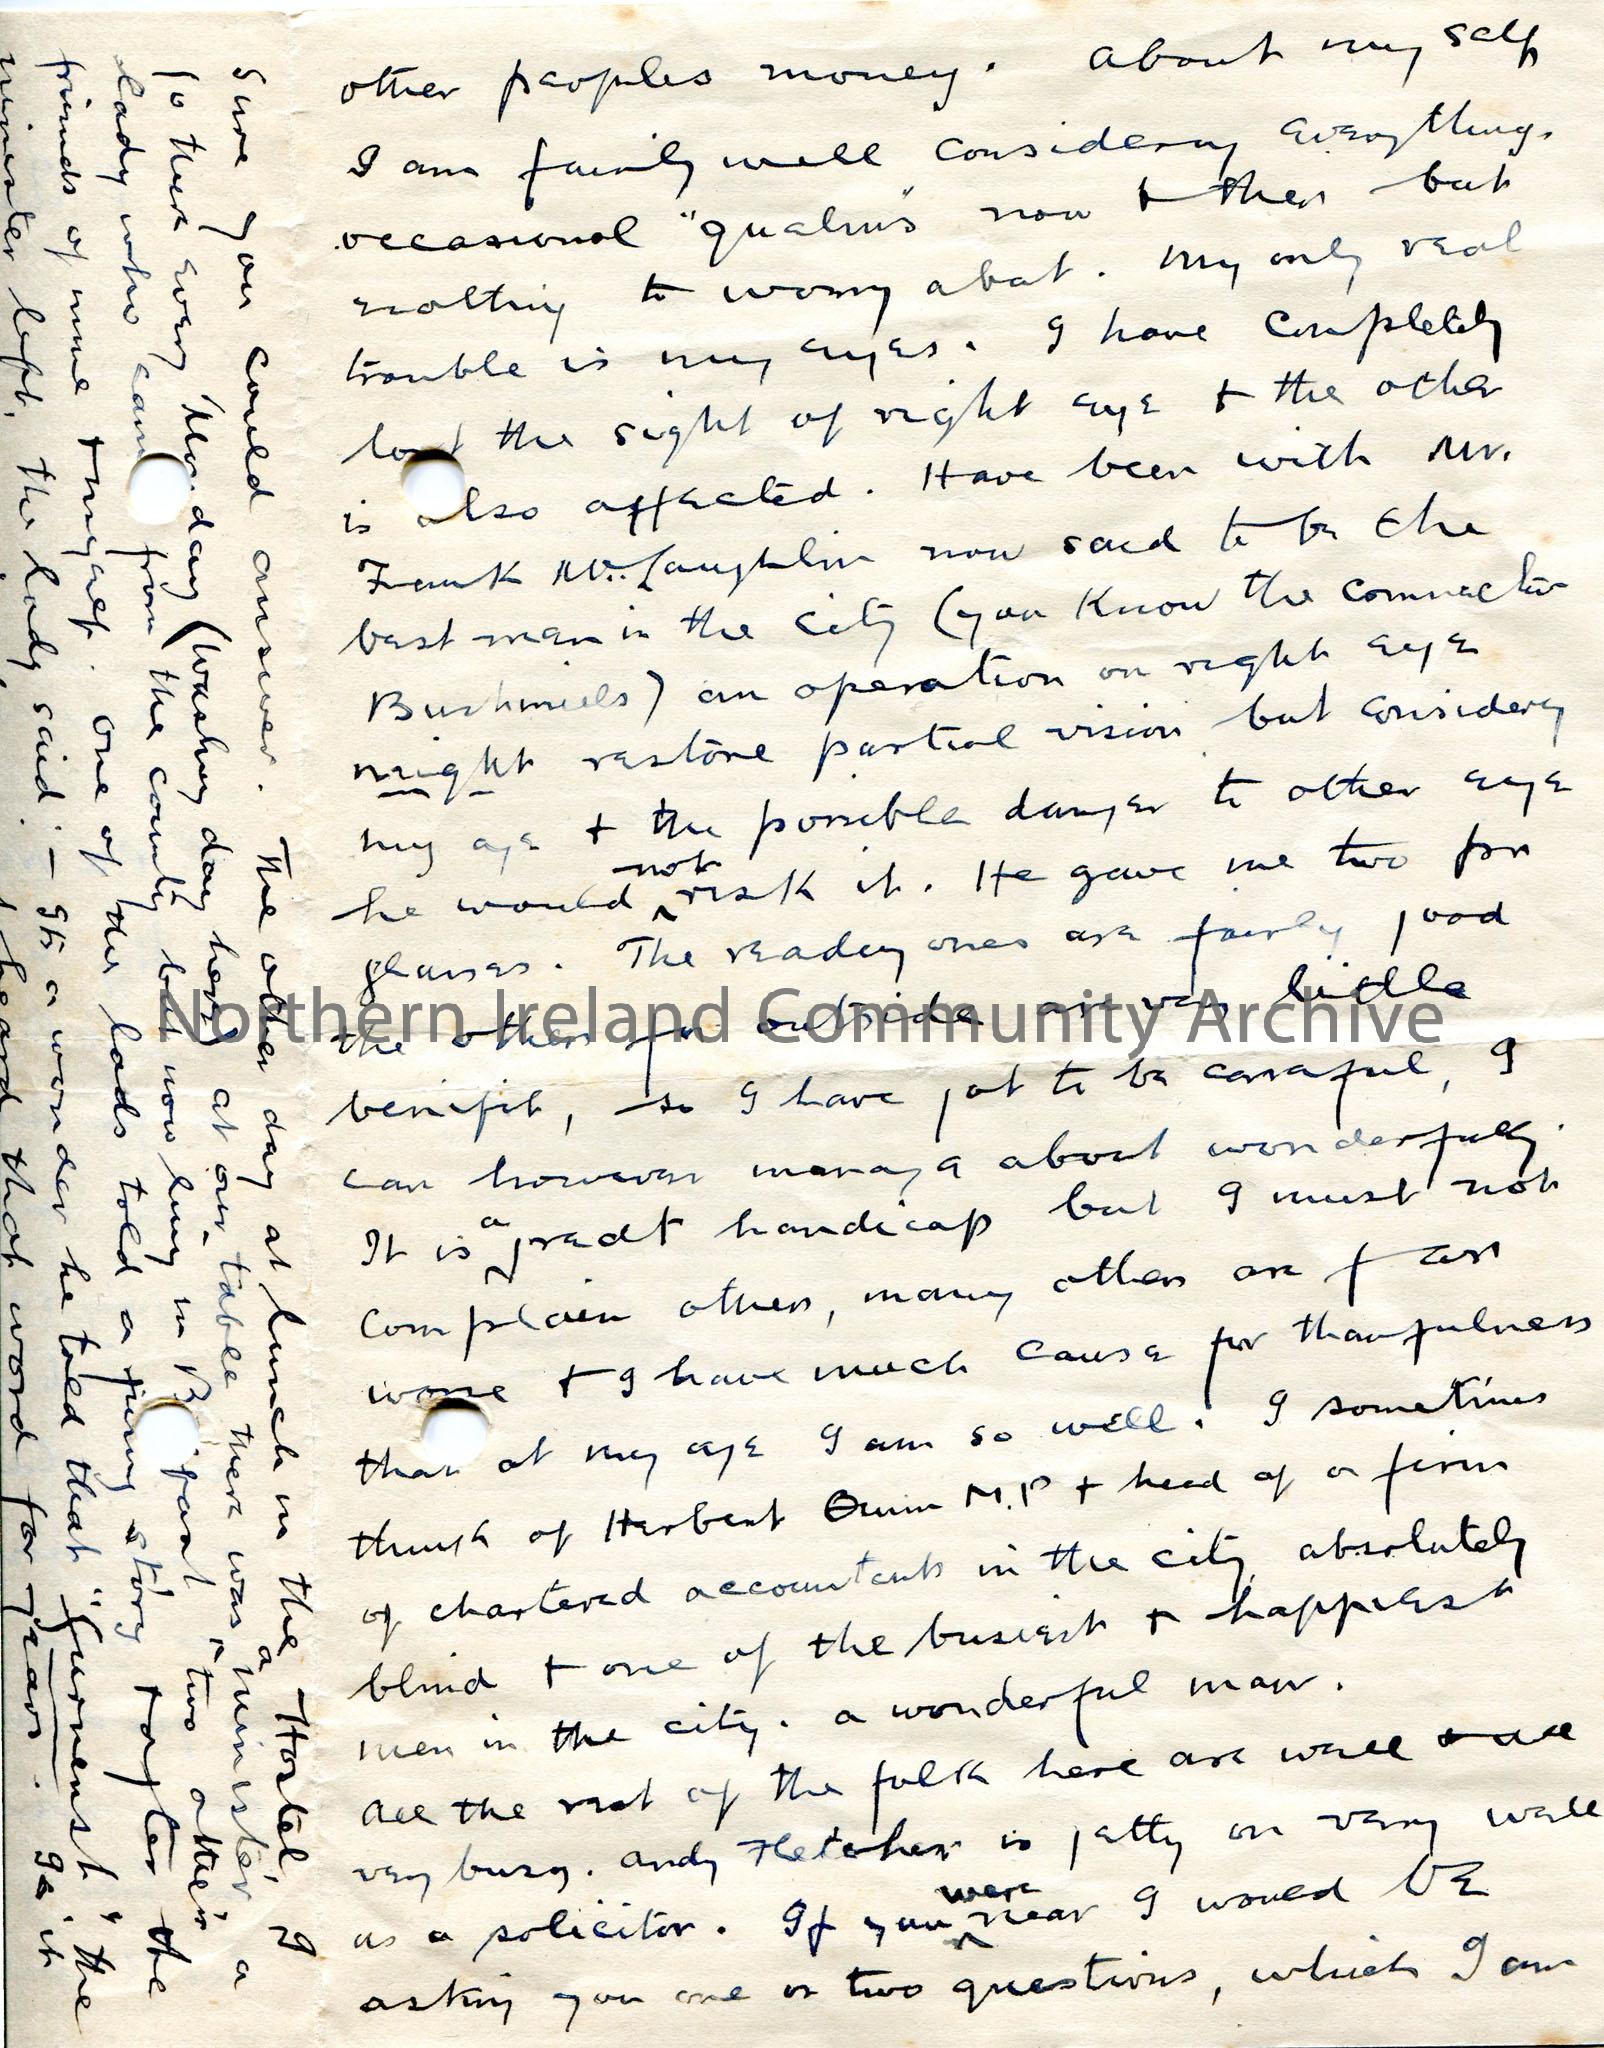 other peoples money. About my self
I am fairly well considering everything.
occasional "qualms" now + then but
nothing to worry about. My only real
trouble is my eyes. I have completely
lost the sight of right eye + the other
is also affected. Have been with Mr.
Frank McLaughlin now said to be the
best man in the city (you know the connection
Bushmills) an operation on right eye
might restore partial vision but considering
my age + the possible danger to other eye
he would not risk it. He gave me two for
glasses. The reading ones are fairly good
the others for outside are very little
benifit, so I have got to be careful, I
can however manage about wonderfully.
It is a great handicap but I must not
complain others, many others are far
worse + I have much cause for thankfulness
that at my age I am so well. I sometimes
think of Herbert Quinn M.P + head of a firm
of chartered accountants in the city, absolutely
blind + one of the busiest + happiest
men in the city. A wonderful man.
All the rest of the folk here are well + all
very busy. Andy Fletcher is getting on very well
as a solicitor. If you were near I would be
asking you one or two questions, which I am
sure you could answer. The other day at lunch in the Hostel, I go
to there every Monday (washing day here) at our table there was a minister a
lady who came from the county but now living in Belfast "two other"
friends of mine + myself. One of the lads told a funny story + after the
minister left, the lady said:- Its a wonder he told that "furnenst" the
heard that word for years. Is it
Northern Ireland Community Archive